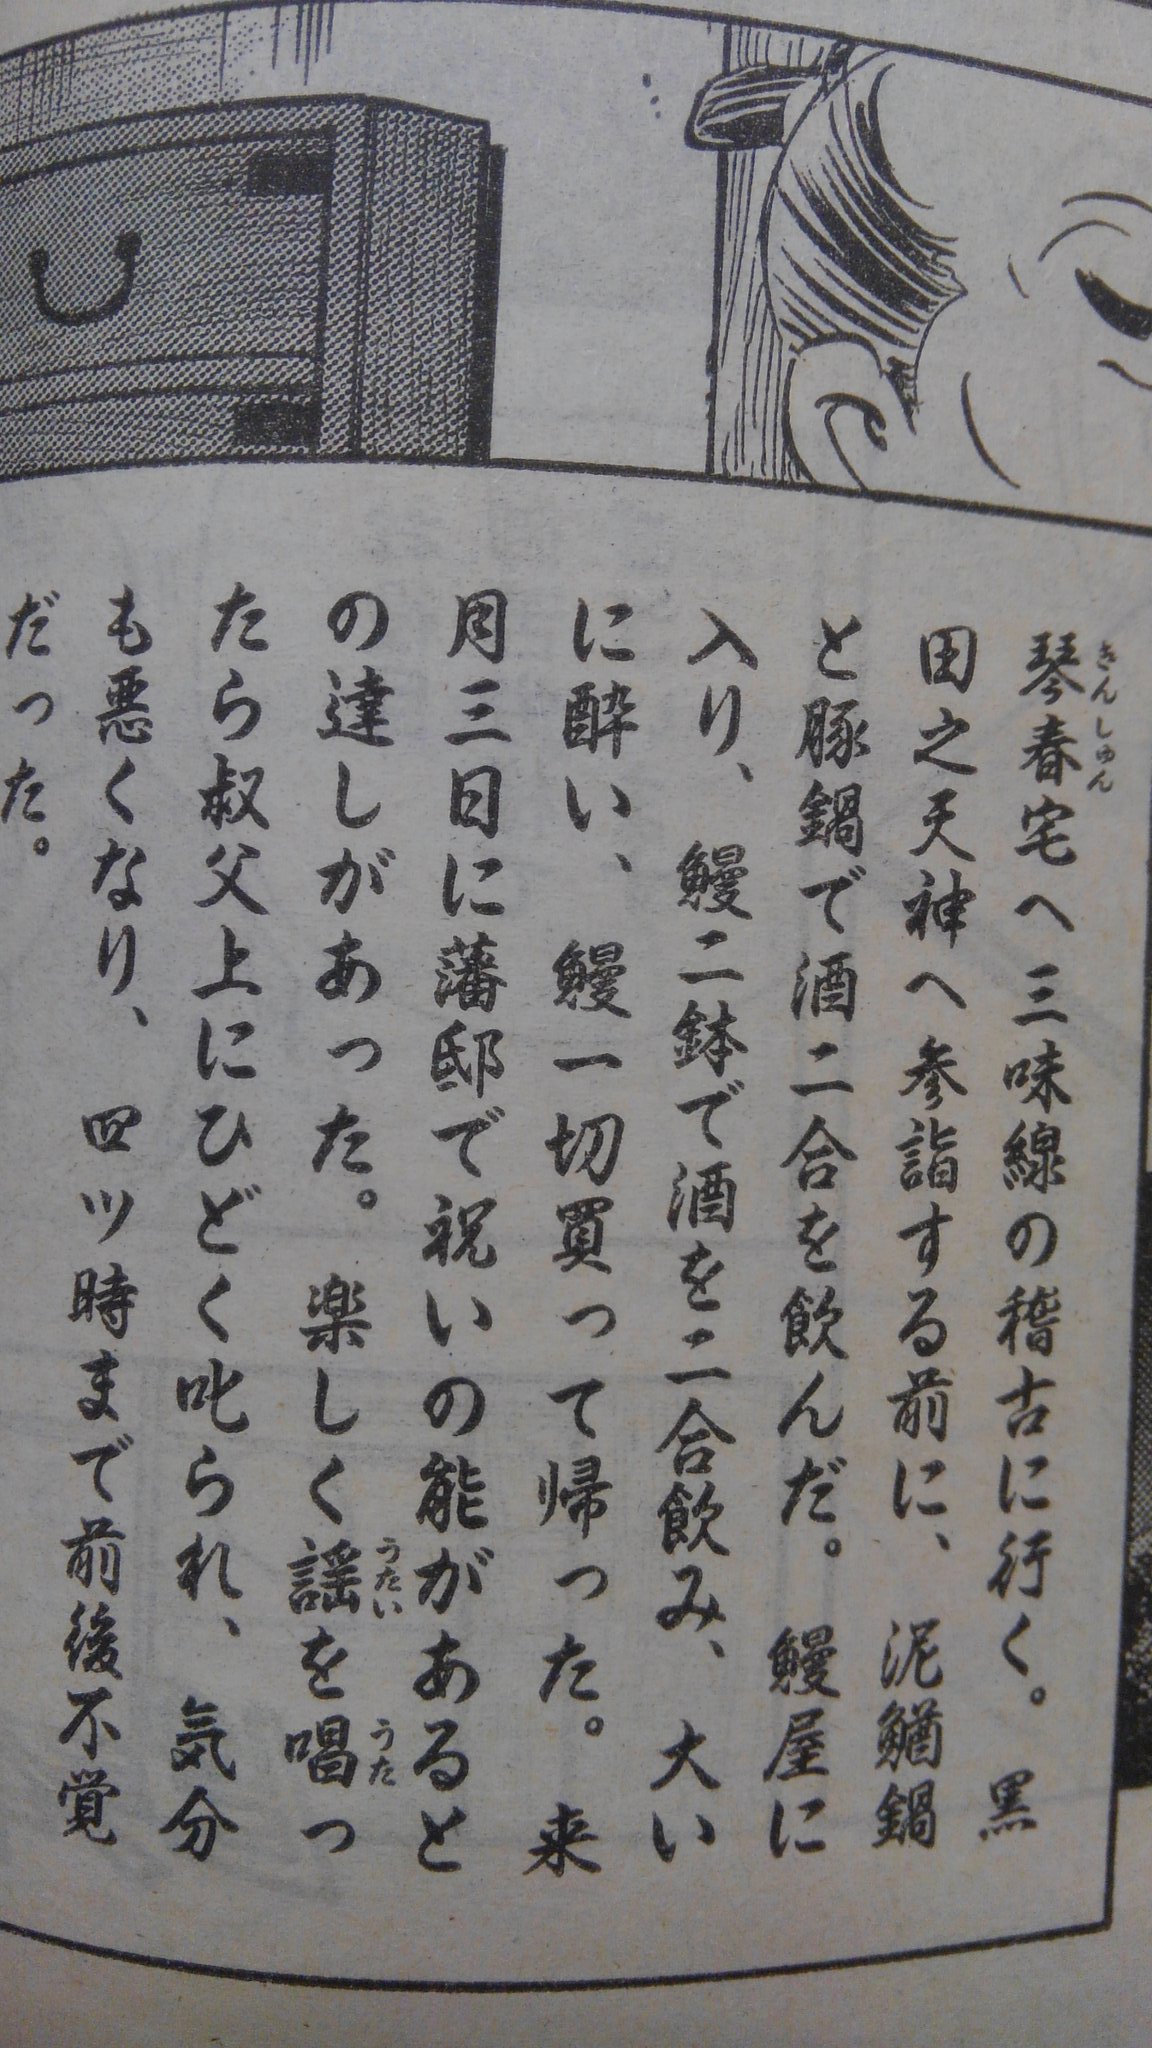 琴春宅へ三味線の稽古に行く。黒
田之天神へ参詣する前に、泥鰌鍋
と豚鍋で酒二合を飲んだ。鰻屋に
入り、鰻二鉢で酒を二合飲み、大い
に酔い、鰻一切買って帰った。来
月三日に藩邸で祝いの能があると
の達しがあった。楽しく謡を唱っ
たら叔父上にひどく叱られ、気分
も悪くなり、四ツ時まで前後不覚
だった。
きんしゅん
うたい
うた